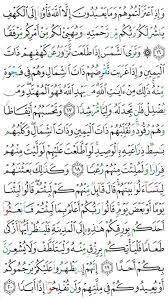 وَإِذِ ٱعْتَزَلْتُمُوهُمْ وَمَا يَعْبُدُونَ إِلَّا ٱللَّهَ فَأْوُۥٓا۟ إِلَى ٱلْكَهْفِ
يَنشُرْ لَكُمْ رَبُّكُم مِّن رَّحْمَتِهِۦ وَيُهَيِّئْ لَكُم مِّنْ أَمْرِكُم مِّرْفَقًا
۝١٦ وَتَرَى ٱلشَّمْسَ إِذَا طَلَعَت تَّزَٰوَرُ عَن كَهْفِهِمْ ذَاتَ
ٱلْيَمِينِ وَإِذَا غَرَبَت تَّقْرِضُهُمْ ذَاتَ ٱلشِّمَالِ وَهُمْ فِى فَجْوَةٍ
مِّنْهُ ذَٰلِكَ مِنْ ءَايَٰتِ ٱللَّهِ مَن يَهْدِ ٱللَّهُ فَهُوَ ٱلْمُهْتَدِ وَمَن يُضْلِلْ
فَلَن تَجِدَ لَهُۥ وَلِيًّا مُّرْشِدًا ۝١٧ وَتَحْسَبُهُمْ أَيْقَاظًا
وَهُمْ رُقُودٌ وَنُقَلِّبُهُمْ ذَاتَ ٱلْيَمِينِ وَذَاتَ ٱلشِّمَالِ وَكَلْبُهُم
بَٰسِطٌ ذِرَاعَيْهِ بِٱلْوَصِيدِ لَوِ ٱطَّلَعْتَ عَلَيْهِمْ لَوَلَّيْتَ مِنْهُمْ
فِرَارًا وَلَمُلِئْتَ مِنْهُمْ رُعْبًا ۝١٨ وَكَذَٰلِكَ بَعَثْنَٰهُمْ
لِيَتَسَآءَلُوا۟ بَيْنَهُمْ قَالَ قَآئِلٌ مِّنْهُمْ كَمْ لَبِثْتُمْ قَالُوا۟ لَبِثْنَا يَوْمًا
أَوْ بَعْضَ يَوْمٍ قَالُوا۟ رَبُّكُمْ أَعْلَمُ بِمَا لَبِثْتُمْ فَٱبْعَثُوٓا۟
أَحَدَكُم بِوَرِقِكُمْ هَٰذِهِۦٓ إِلَى ٱلْمَدِينَةِ فَلْيَنظُرْ أَيُّهَآ أَزْكَىٰ
طَعَامًا فَلْيَأْتِكُم بِرِزْقٍ مِّنْهُ وَلْيَتَلَطَّفْ وَلَا يُشْعِرَنَّ
بِكُمْ أَحَدًا ۝١٩ إِنَّهُمْ إِن يَظْهَرُوا۟ عَلَيْكُمْ يَرْجُمُوكُمْ
أَوْ يُعِيدُوكُمْ فِى مِلَّتِهِمْ وَلَن تُفْلِحُوٓا۟ إِذًا أَبَدًا ۝٢٠